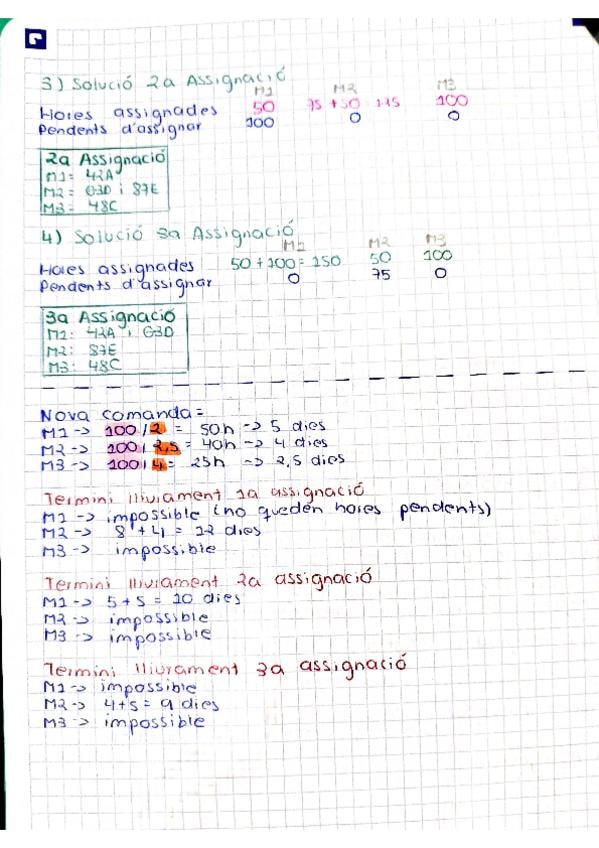 3) Solució 2a Assignació
M1 M2 M3
Hores assignades 50 75 + 50 125 100
Pendents d'assignar 100 0 0
2a Assignació
M1: 42A
M2: G3D i 87E
M3: 48C
4) Solució 3a Assignació
M1 M2 M3
Hores assignades 50 + 100 = 150 50 100
Pendents d'assignar 0 75 0
3a Assignació
M1: 42A i G3D
M2: 87E
M3: 48C
Nova comanda =
M1 -> 100 / 2 = 50h -> 5 dies
M2 -> 100 / 2,5 = 40h -> 4 dies
M3 -> 100 / 4 = 25h -> 2,5 dies
Termini lliurament 1a assignació
M1 -> impossible (no queden hores pendents)
M2 -> 8 + 4 = 12 dies
M3 -> impossible
Termini lliurament 2a assignació
M1 -> 5 + 5 = 10 dies
M2 -> impossible
M3 -> impossible
Termini lliurament 3a assignació
M1 -> impossible
M2 -> 4+5 = 9 dies
M3 -> impossible